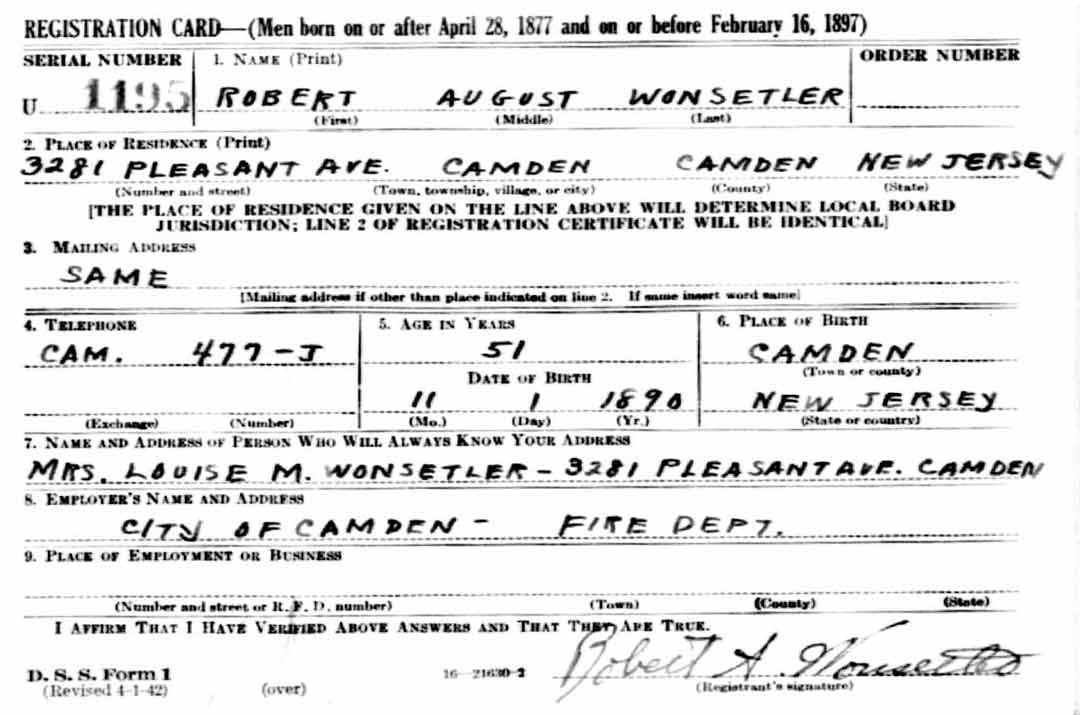 REGISTRATION CARD—(Men born on or after April 28, 1877 and on or before February 16, 1897)
SERIAL NUMBER 1. NAME (Print) ORDER NUMBER
U 1195 ROBERT AUGUST WONSETLER
(First) (Middle) (Last)
2. PLACE OF RESIDENCE (Print)
3281 PLEASANT AVE. CAMDEN CAMDEN NEW JERSEY
(Number and street) (Town, township, village, or city) (County) (State)
[THE PLACE OF RESIDENCE GIVEN ON THE LINE ABOVE WILL DETERMINE LOCAL BOARD
JURISDICTION; LINE 2 OF REGISTRATION CERTIFICATE WILL BE IDENTICAL]
3. MAILING ADDRESS
SAME
[Mailing address if other than place indicated on line 2. If same insert word same]
4. TELEPHONE 5. AGE IN YEARS 6. PLACE OF BIRTH
CAM. 477-J 51 CAMDEN
(Town or county)
DATE OF BIRTH
11 1 1890 NEW JERSEY
(Exchange) (Number) (Mo.) (Day) (Yr.) (State or country)
7. NAME AND ADDRESS OF PERSON WHO WILL ALWAYS KNOW YOUR ADDRESS
MRS. LOUISE M. WONSETLER - 3281 PLEASANT AVE. CAMDEN
8. EMPLOYER'S NAME AND ADDRESS
CITY OF CAMDEN - FIRE DEPT.
9. PLACE OF EMPLOYMENT OR BUSINESS
(Number and street or R. F. D. number) (Town) (County) (State)
I AFFIRM THAT I HAVE VERIFIED ABOVE ANSWERS AND THAT THEY ARE TRUE.
Robert A. Wonsetler
D. S. S. Form 1 16—21630-2
(Revised 4-1-42) (over) (Registrant's signature)